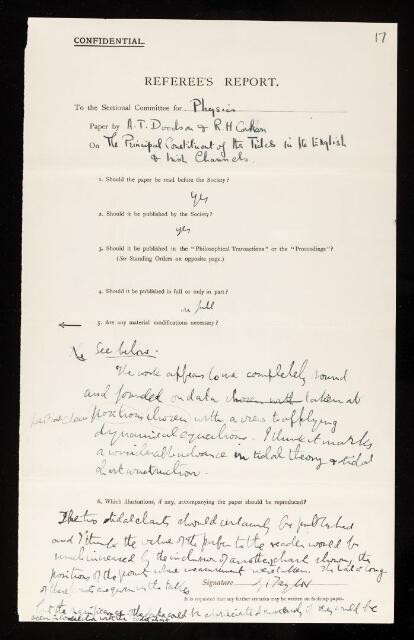 17
CONFIDENTIAL.
REFEREE'S REPORT.
To the Sectional Committee for Physics
Paper by A. T. Doodson & R. H. Corkan
On The Principal Constituent of the Tides in the English
& Irish Channels.
1. Should the paper be read before the Society?
yes
2. Should it be published by the Society?
yes
3. Should it be published in the "Philosophical Transactions" or the "Proceedings"?
(See Standing Orders on opposite page.)
4. Should it be published in full or only in part?
in full
5. Are any material modifications necessary?
See below.
The work appears to me completely sound
and founded on data chosen with taken at
positions chosen with a view to applying
dynamical equations. I think it marks
a considerable advance in tidal theory & tidal
chart construction.
6. Which illustrations, if any, accompanying the paper should be reproduced?
The two tidal charts should certainly be published
and I think the value of the paper to the reader would be
much increased by the inclusion of another chart showing the
positions of the points where measurements were taken. The lat & long
of these points are given in the tables
Signature G. I. Taylor
It is requested that any further remarks may be written on foolscap paper.
but the significance of the data could be appreciated more easily if they could be
seen in connection with the